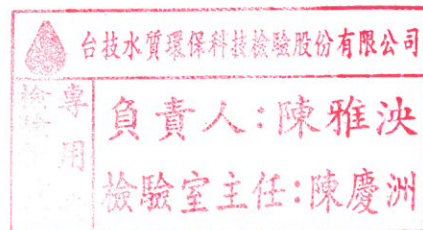 台技水質環保科技檢驗股份有限公司
專用
負責人:陳雅泱
檢驗室主任:陳慶洲